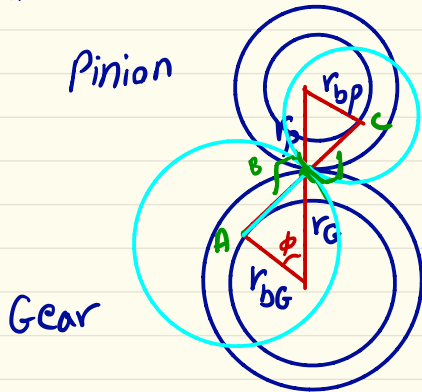 Pinion
r_bp
C
r_p
B
r_G
A
ϕ
r_bG
Gear